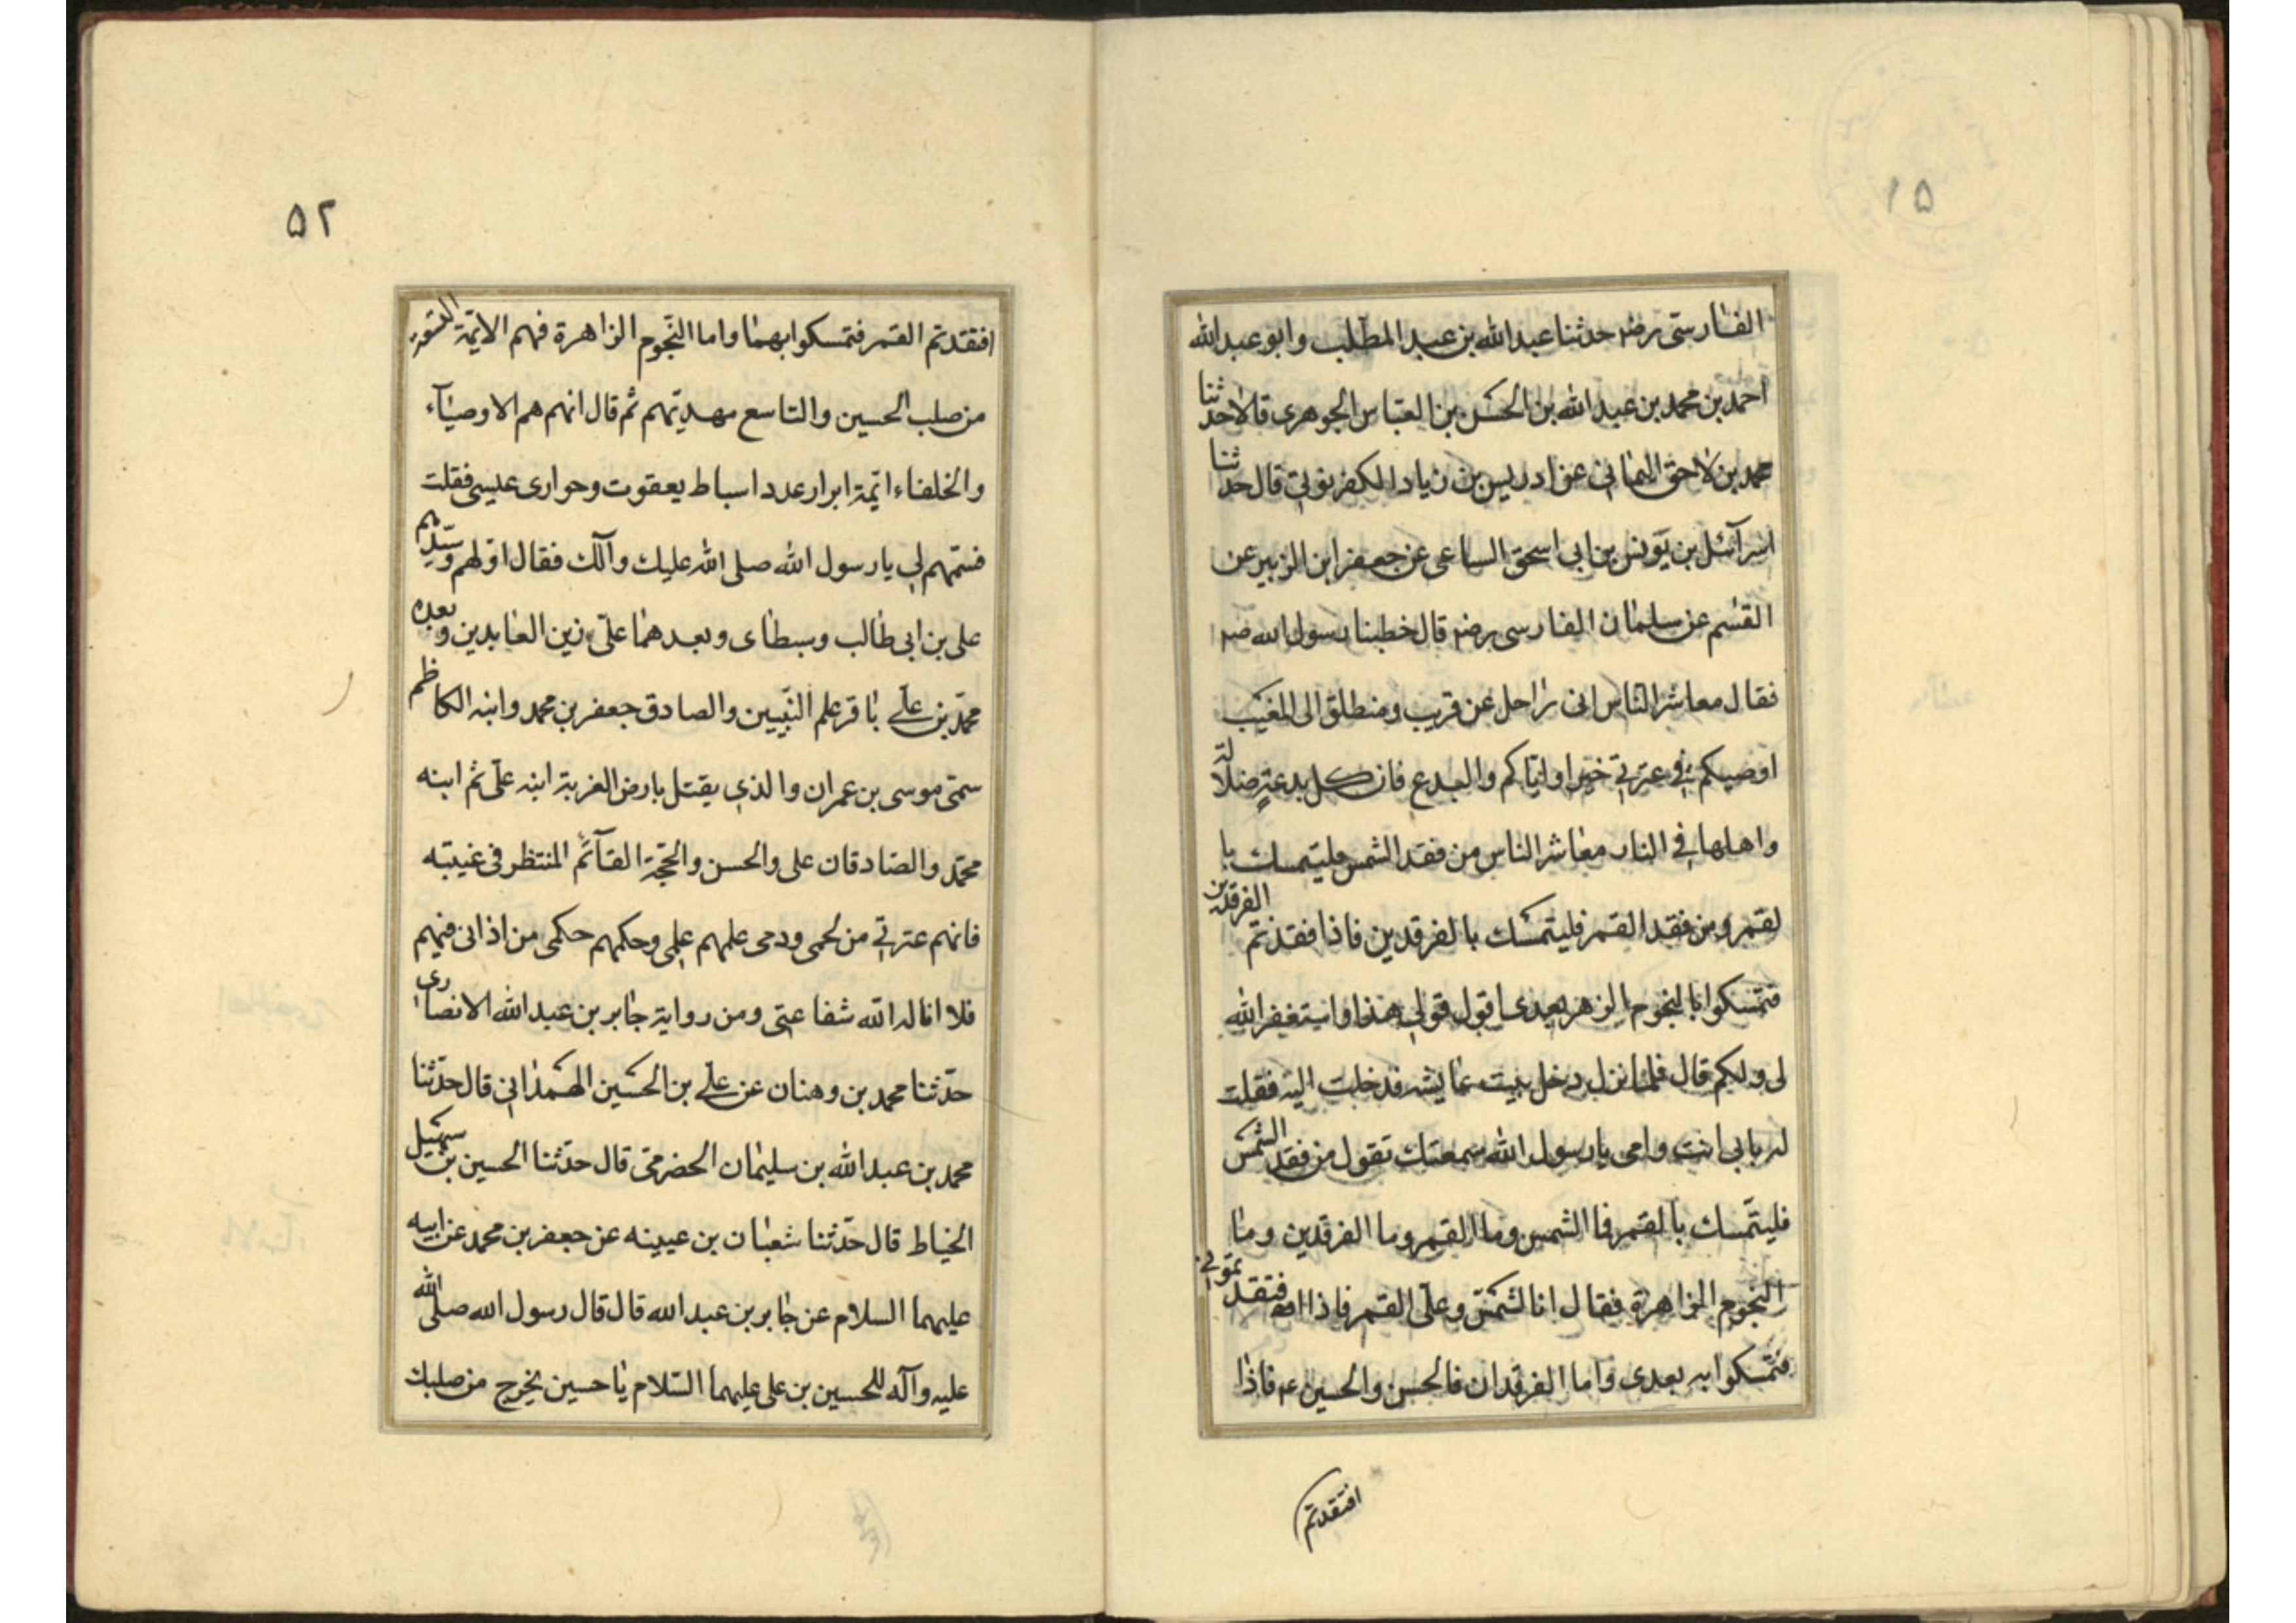 ۵۱
الفارسی رضه حدثنا عبدالله بن عبد المطلب وابو عبدالله
احمد بن محمد بن عبدالله بن الحسن بن العباس الجوهری قالا حدثنا
محمد بن لاحق الیمانی عن ادریس بن زیاد الکفرنوثی قال حدثنا
اسرآئیل بن یونس بن ابی اسحق السباعی عن جعفر ابن الزبیر عن
القسم عن سلیمان الفارسی رضه قال خطبنا رسول الله صه
فقال معاشر الناس انی راحل عن قریب ومنطلق الی المغیب
اوصیکم فی عترتی خیرا وایاکم والبدع فان کل بدعة ضلالة
واهلها فی النار معاشر الناس من فقد الشمس فلیتمسک با
لقمر ومن فقد القمر فلیتمسک بالفرقدین فاذا فقدتم الفرقدین
فتمسکوا بالنجوم الزهر بعدی اقول قولی هذا واستغفر الله
لی ولکم قال فلما نزل دخل بیت عایشه فدخلت الیه فقلت
له بابی انت وامی یا رسول الله سمعتک تقول من فقد الشمس
فلیتمسک بالقمر فا الشمس وما القمر وما الفرقدین وما
النجوم الزاهرة فقال انا الشمس وعلی القمر فاذا افتقدتمونی
فتمسکوا به بعدی واما الفرقدان فالحسن والحسین ع فاذا
افتقدتم
۵۲
افتقدتم القمر فتمسکوا بهما واما النجوم الزاهرة فهم الایمة التسعة
من صلب الحسین والتاسع مهدیهم ثم قال انهم هم الاوصیآء
والخلفاء ایمة ابرار عدد اسباط یعقوت وحواری عیسی فقلت
فسمهم لی یا رسول الله صلی الله علیک وآلک فقال اولهم وسیدهم
علی بن ابی طالب وسبطای وبعدهما علی زین العابدین وبعده
محمد بن علی باقر علم النبیین والصادق جعفر بن محمد وابنه الکاظم
سمی موسی بن عمران والذی یقتل بارض الغربة ابنه علی ثم ابنه
محمد والصادقان علی والحسن والحجة القآئم المنتظر فی غیبته
فانهم عترتی من لحمی ودمی علمهم علمی وحکمهم حکمی من اذانی فیهم
فلا اناله الله شفاعتی ومن روایة جابر بن عبدالله الانصاری
حدثنا محمد بن وهنان عن علی بن الحسین الهمدانی قال حدثنا
محمد بن عبدالله بن سلیمان الحضرمی قال حدثنا الحسین بن سهیل
الخیاط قال حدثنا شعبان بن عیینه عن جعفر بن محمد عن ابیه
علیهما السلام عن جابر بن عبدالله قال قال رسول الله صلی الله
علیه وآله للحسین بن علی علیهما السلام یا حسین یخرج من صلبک